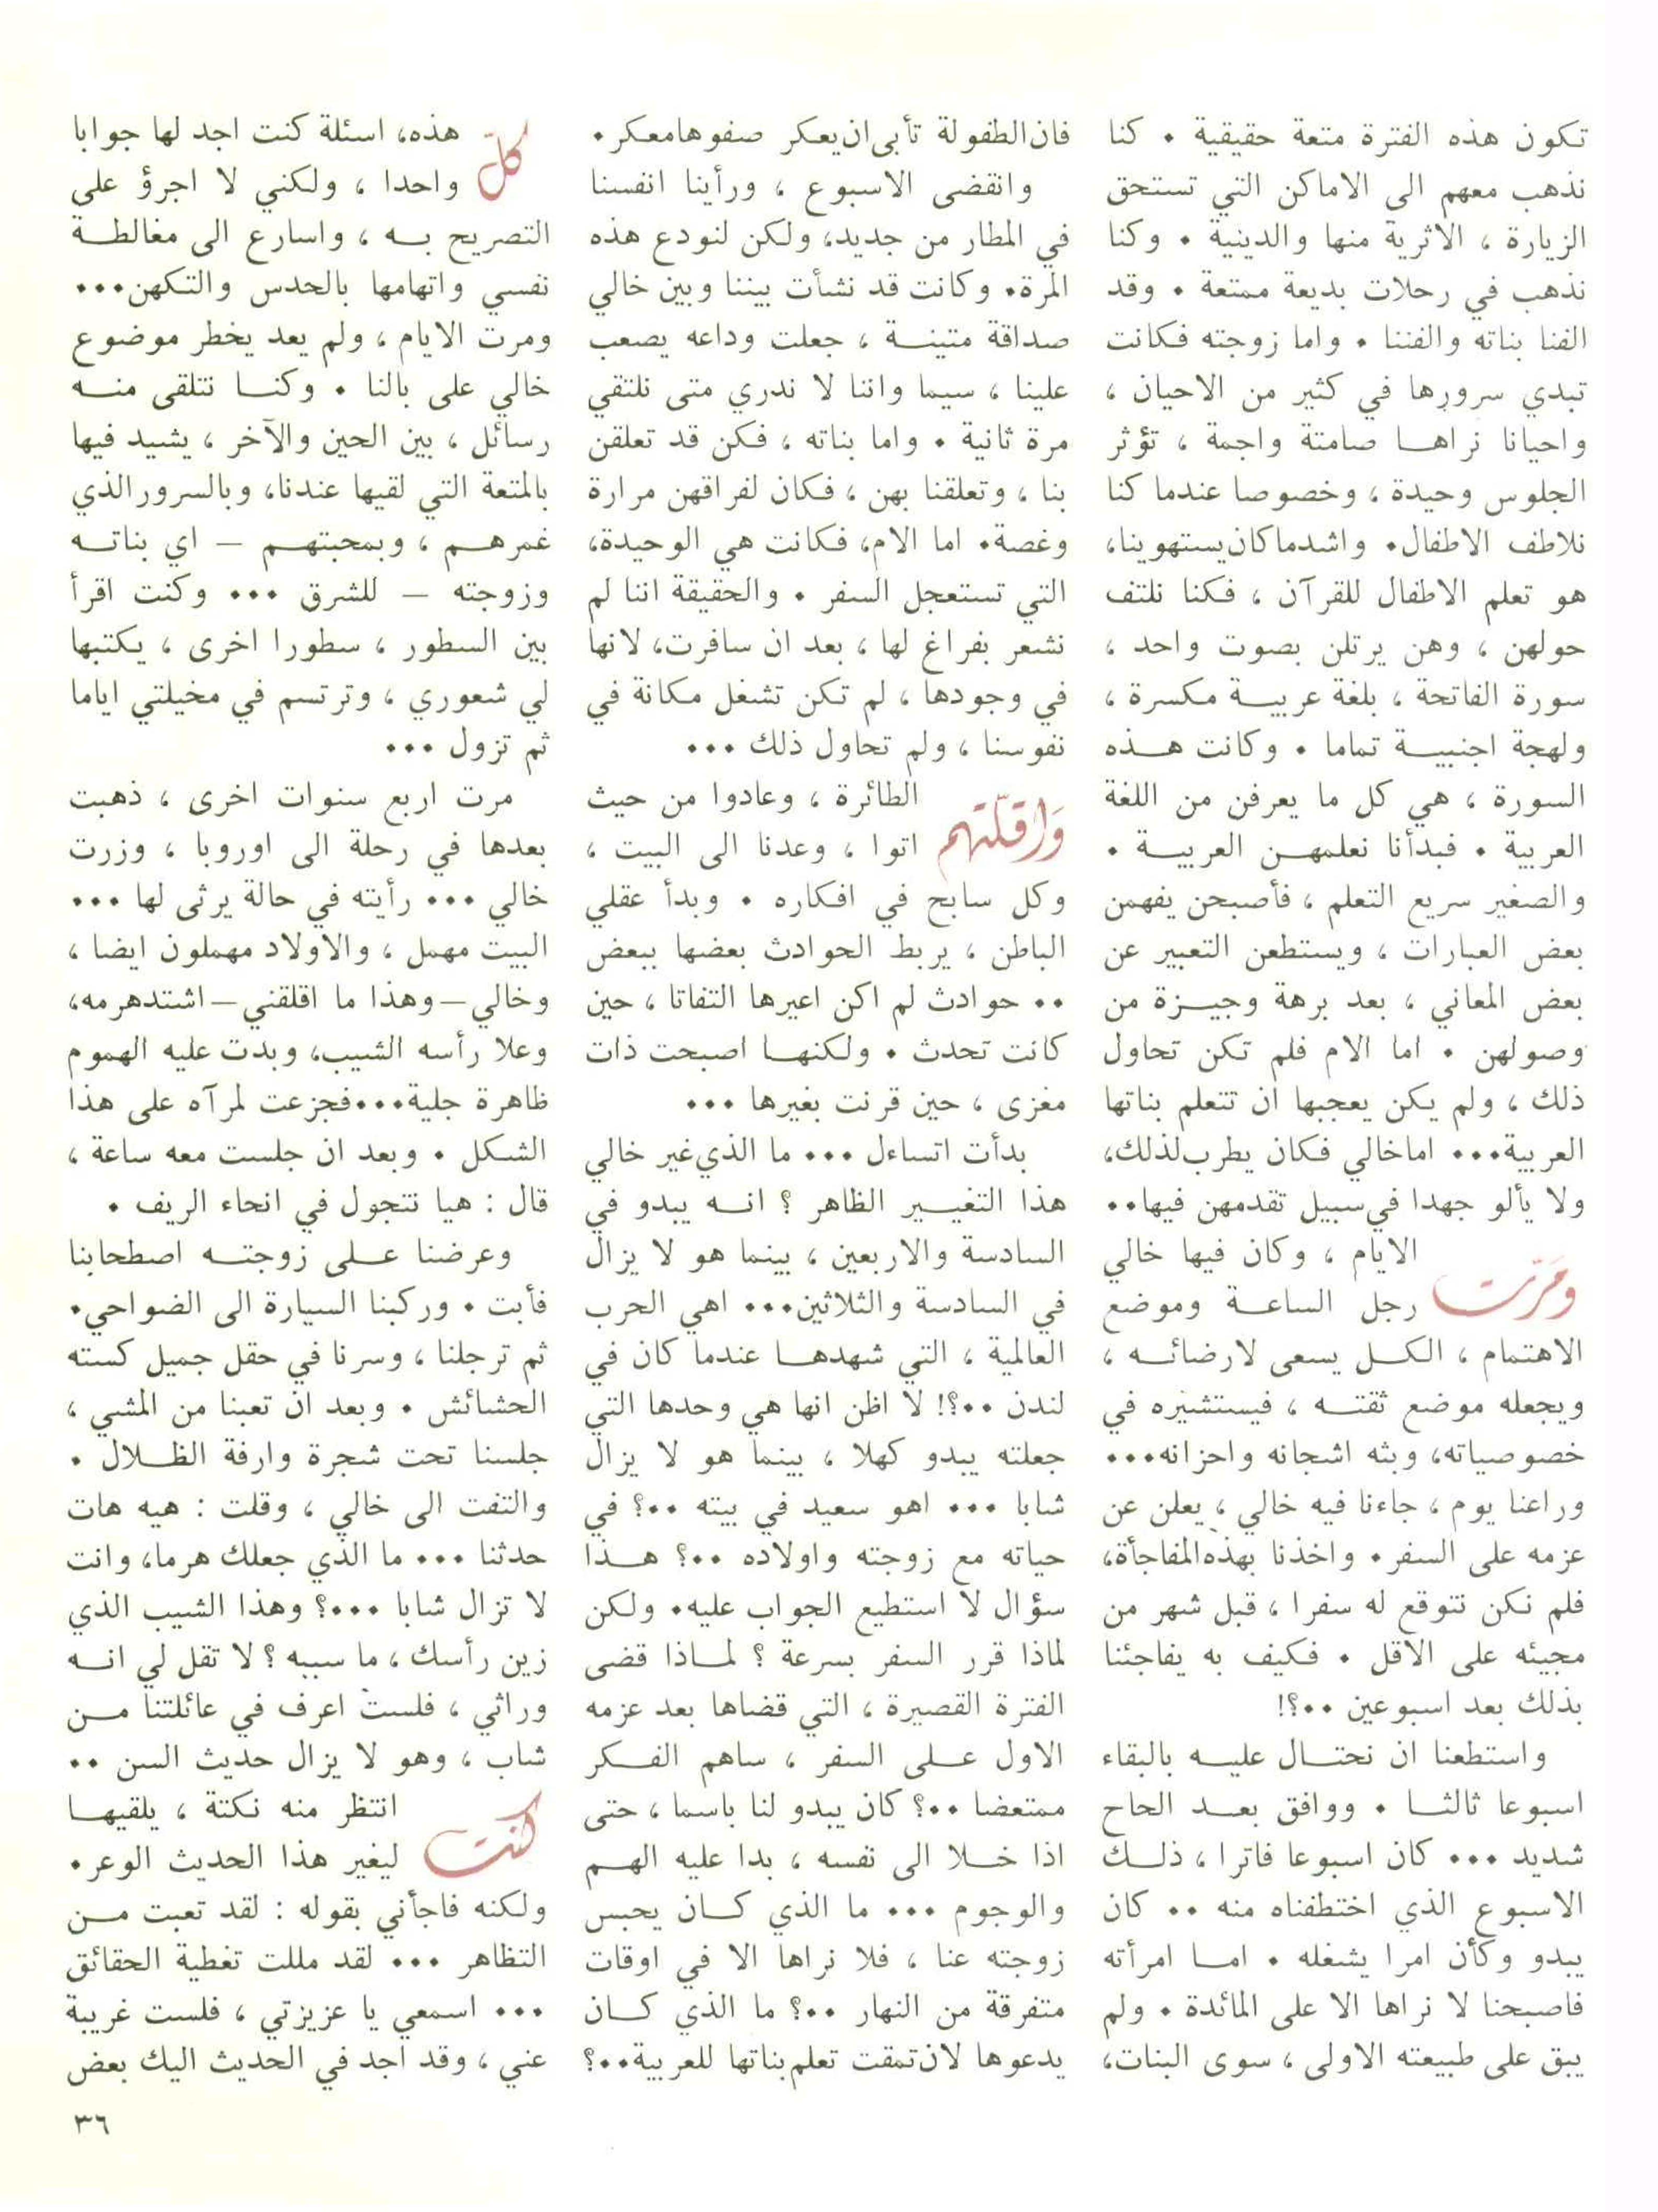 تكون هذه الفترة متعة حقيقية . كنا
نذهب معهم الى الاماكن التي تستحق
الزيارة ، الاثرية منها والدينية . وكنا
نذهب في رحلات بديعة ممتعة . وقد
الفنا بناته والفننا . واما زوجته فكانت
تبدي سرورها في كثير من الاحيان ،
واحيانا نراها صامتة واجمة ، تؤثر
الجلوس وحيدة ، وخصوصا عندما كنا
نلاطف الاطفال. واشدماكان يستهوينا،
هو تعلم الاطفال للقرآن ، فكنا نلتف
حولهن ، وهن يرتلن بصوت واحد ،
سورة الفاتحة ، بلغة عربية مكسرة ،
ولهجة اجنبية تماما . وكانت هذه
السورة ، هي كل ما يعرفن من اللغة
العربية . فبدأنا نعلمهن العربية .
والصغير سريع التعلم ، فأصبحن يفهمن
بعض العبارات ، ويستطعن التعبير عن
بعض المعاني ، بعد برهة وجيزة من
وصولهن . اما الام فلم تكن تحاول
ذلك ، ولم يكن يعجبها ان تتعلم بناتها
العربية... اماخالي فكان يطرب لذلك،
ولا يألو جهدا في سبيل تقدمهن فيها..
ومَرّت الايام ، وكان فيها خالي
رجل الساعة وموضع
الاهتمام ، الكل يسعى لارضائه ،
ويجعله موضع ثقته ، فيستشيره في
خصوصياته، وبثه اشجانه واحزانه...
وراعنا يوم ، جاءنا فيه خالي ، يعلن عن
عزمه على السفر. واخذنا بهذه المفاجأة،
فلم نكن نتوقع له سفرا ، قبل شهر من
مجيئه على الاقل . فكيف به يفاجئنا
بذلك بعد اسبوعين ..؟!
واستطعنا ان نحتال عليه بالبقاء
اسبوعا ثالثا . ووافق بعد الحاح
شديد ... كان اسبوعا فاترا ، ذلك
الاسبوع الذي اختطفناه منه .. كان
يبدو وكأن امرا يشغله . اما امرأته
فاصبحنا لا نراها الا على المائدة . ولم
يبق على طبيعته الاولى ، سوى البنات،
فان الطفولة تأبى ان يعكر صفوها معكر.
وانقضى الاسبوع ، ورأينا انفسنا
في المطار من جديد، ولكن لنودع هذه
المرة. وكانت قد نشأت بيننا وبين خالي
صداقة متينة ، جعلت وداعه يصعب
علينا ، سيما واننا لا ندري متى نلتقي
مرة ثانية . واما بناته ، فكن قد تعلقن
بنا ، وتعلقنا بهن ، فكان لفراقهن مرارة
وغصة. اما الام، فكانت هي الوحيدة،
التي تستعجل السفر . والحقيقة اننا لم
نشعر بفراغ لها ، بعد ان سافرت، لانها
في وجودها ، لم تكن تشغل مكانة في
نفوسنا ، ولم تحاول ذلك ...
وَاقلّتهم الطائرة ، وعادوا من حيث
اتوا ، وعدنا الى البيت ،
وكل سابح في افكاره . وبدأ عقلي
الباطن ، يربط الحوادث بعضها ببعض
.. حوادث لم اكن اعيرها التفاتا ، حين
كانت تحدث . ولكنها اصبحت ذات
مغزى ، حين قرنت بغيرها ...
بدأت اتساءل ... ما الذي غير خالي
هذا التغيير الظاهر ؟ انه يبدو في
السادسة والاربعين ، بينما هو لا يزال
في السادسة والثلاثين... اهي الحرب
العالمية ، التي شهدها عندما كان في
لندن ..؟! لا اظن انها هي وحدها التي
جعلته يبدو كهلا ، بينما هو لا يزال
شابا ... اهو سعيد في بيته ..؟ في
حياته مع زوجته واولاده ..؟ هذا
سؤال لا استطيع الجواب عليه. ولكن
لماذا قرر السفر بسرعة ؟ لماذا قضى
الفترة القصيرة ، التي قضاها بعد عزمه
الاول على السفر ، ساهم الفكر
ممتعضا ..؟ كان يبدو لنا باسما ، حتى
اذا خلا الى نفسه ، بدا عليه الهم
والوجوم ... ما الذي كان يحبس
زوجته عنا ، فلا نراها الا في اوقات
متفرقة من النهار ..؟ ما الذي كان
يدعوها لان تمقت تعلم بناتها للعربية..؟
كل هذه، اسئلة كنت اجد لها جوابا
واحدا ، ولكني لا اجرؤ على
التصريح به ، واسارع الى مغالطة
نفسي واتهامها بالحدس والتكهن...
ومرت الايام ، ولم يعد يخطر موضوع
خالي على بالنا . وكنا نتلقى منه
رسائل ، بين الحين والآخر ، يشيد فيها
بالمتعة التي لقيها عندنا، وبالسرور الذي
غمرهم ، وبمحبتهم — اي بناته
وزوجته — للشرق ... وكنت اقرأ
بين السطور ، سطورا اخرى ، يكتبها
لي شعوري ، وترتسم في مخيلتي اياما
ثم تزول ...
مرت اربع سنوات اخرى ، ذهبت
بعدها في رحلة الى اوروبا ، وزرت
خالي ... رأيته في حالة يرثى لها ...
البيت مهمل ، والاولاد مهملون ايضا ،
وخالي—وهذا ما اقلقني—اشتدهرمه،
وعلا رأسه الشيب، وبدت عليه الهموم
ظاهرة جلية...فجزعت لمرآه على هذا
الشكل . وبعد ان جلست معه ساعة ،
قال : هيا نتجول في انحاء الريف .
وعرضنا على زوجته اصطحابنا
فأبت . وركبنا السيارة الى الضواحي.
ثم ترجلنا ، وسرنا في حقل جميل كسته
الحشائش . وبعد ان تعبنا من المشي ،
جلسنا تحت شجرة وارفة الظلال .
والتفت الى خالي ، وقلت : هيه هات
حدثنا ... ما الذي جعلك هرما، وانت
لا تزال شابا ...؟ وهذا الشيب الذي
زين رأسك ، ما سببه ؟ لا تقل لي انه
وراثي ، فلست اعرف في عائلتنا من
شاب ، وهو لا يزال حديث السن ..
كنت انتظر منه نكتة ، يلقيها
ليغير هذا الحديث الوعر.
ولكنه فاجأني بقوله : لقد تعبت من
التظاهر ... لقد مللت تغطية الحقائق
... اسمعي يا عزيزتي ، فلست غريبة
عني ، وقد اجد في الحديث اليك بعض
٣٦